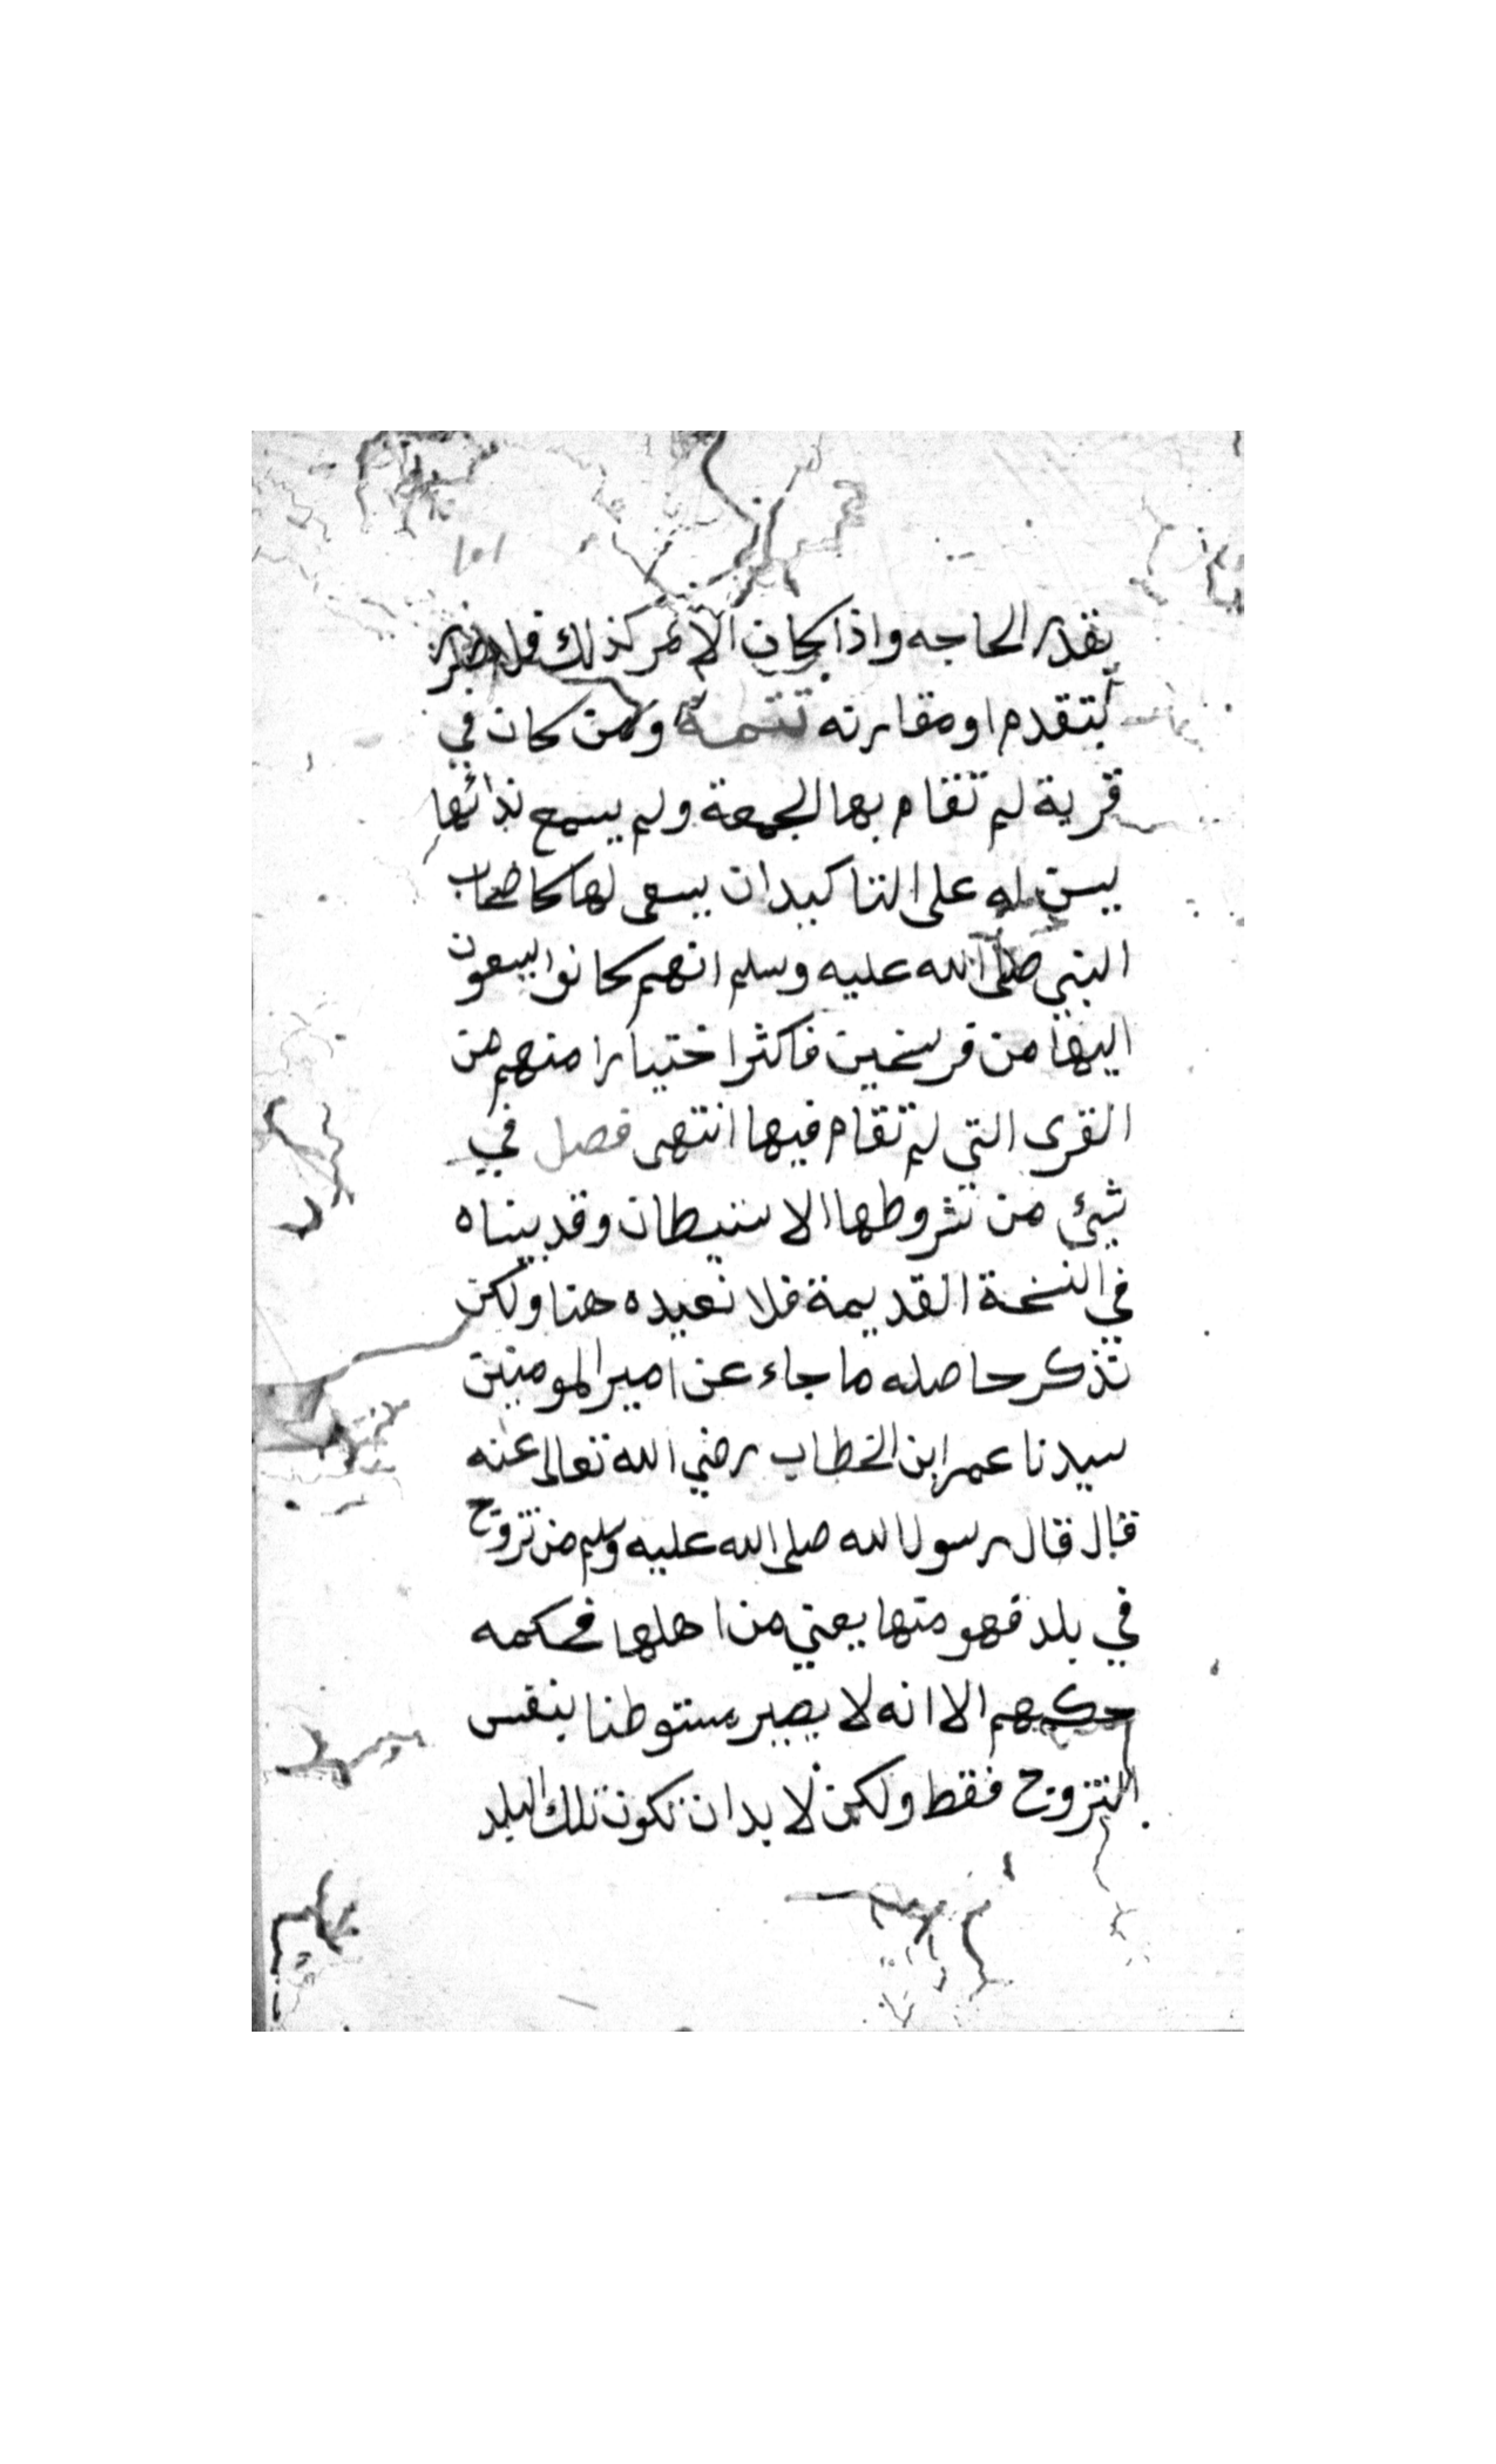 ١٥١
بقدر الحاجه واذا كان الامر كذلك فلا ضرر
بتقدم او مقارنه تتمة ومن كان في
قرية لم تقام بها الجمعة ولم يسمع ندائها
يسن له على التاكيد ان يسعى لها كاصحاب
النبي صلى الله عليه وسلم انهم كانوا يسعون
اليها من فرسخين فاكثر اختيارا منهم من
القرى التي لم تقام فيها انتهى فصل في
شيئ من شروطها الاستيطان وقد بيناه
في النسخة القديمة فلا نعيده هنا ولكن
نذكر حاصله ما جاء عن امير المومنين
سيدنا عمر ابن الخطاب رضي الله تعالى عنه
قال قال رسول الله صلى الله عليه وسلم من تزوج
في بلد فهو منها يعني من اهلها فحكمه
حكمهم الا انه لا يصير مستوطنا بنفس
التزوج فقط ولكن لا بد ان تكون تلك البلد